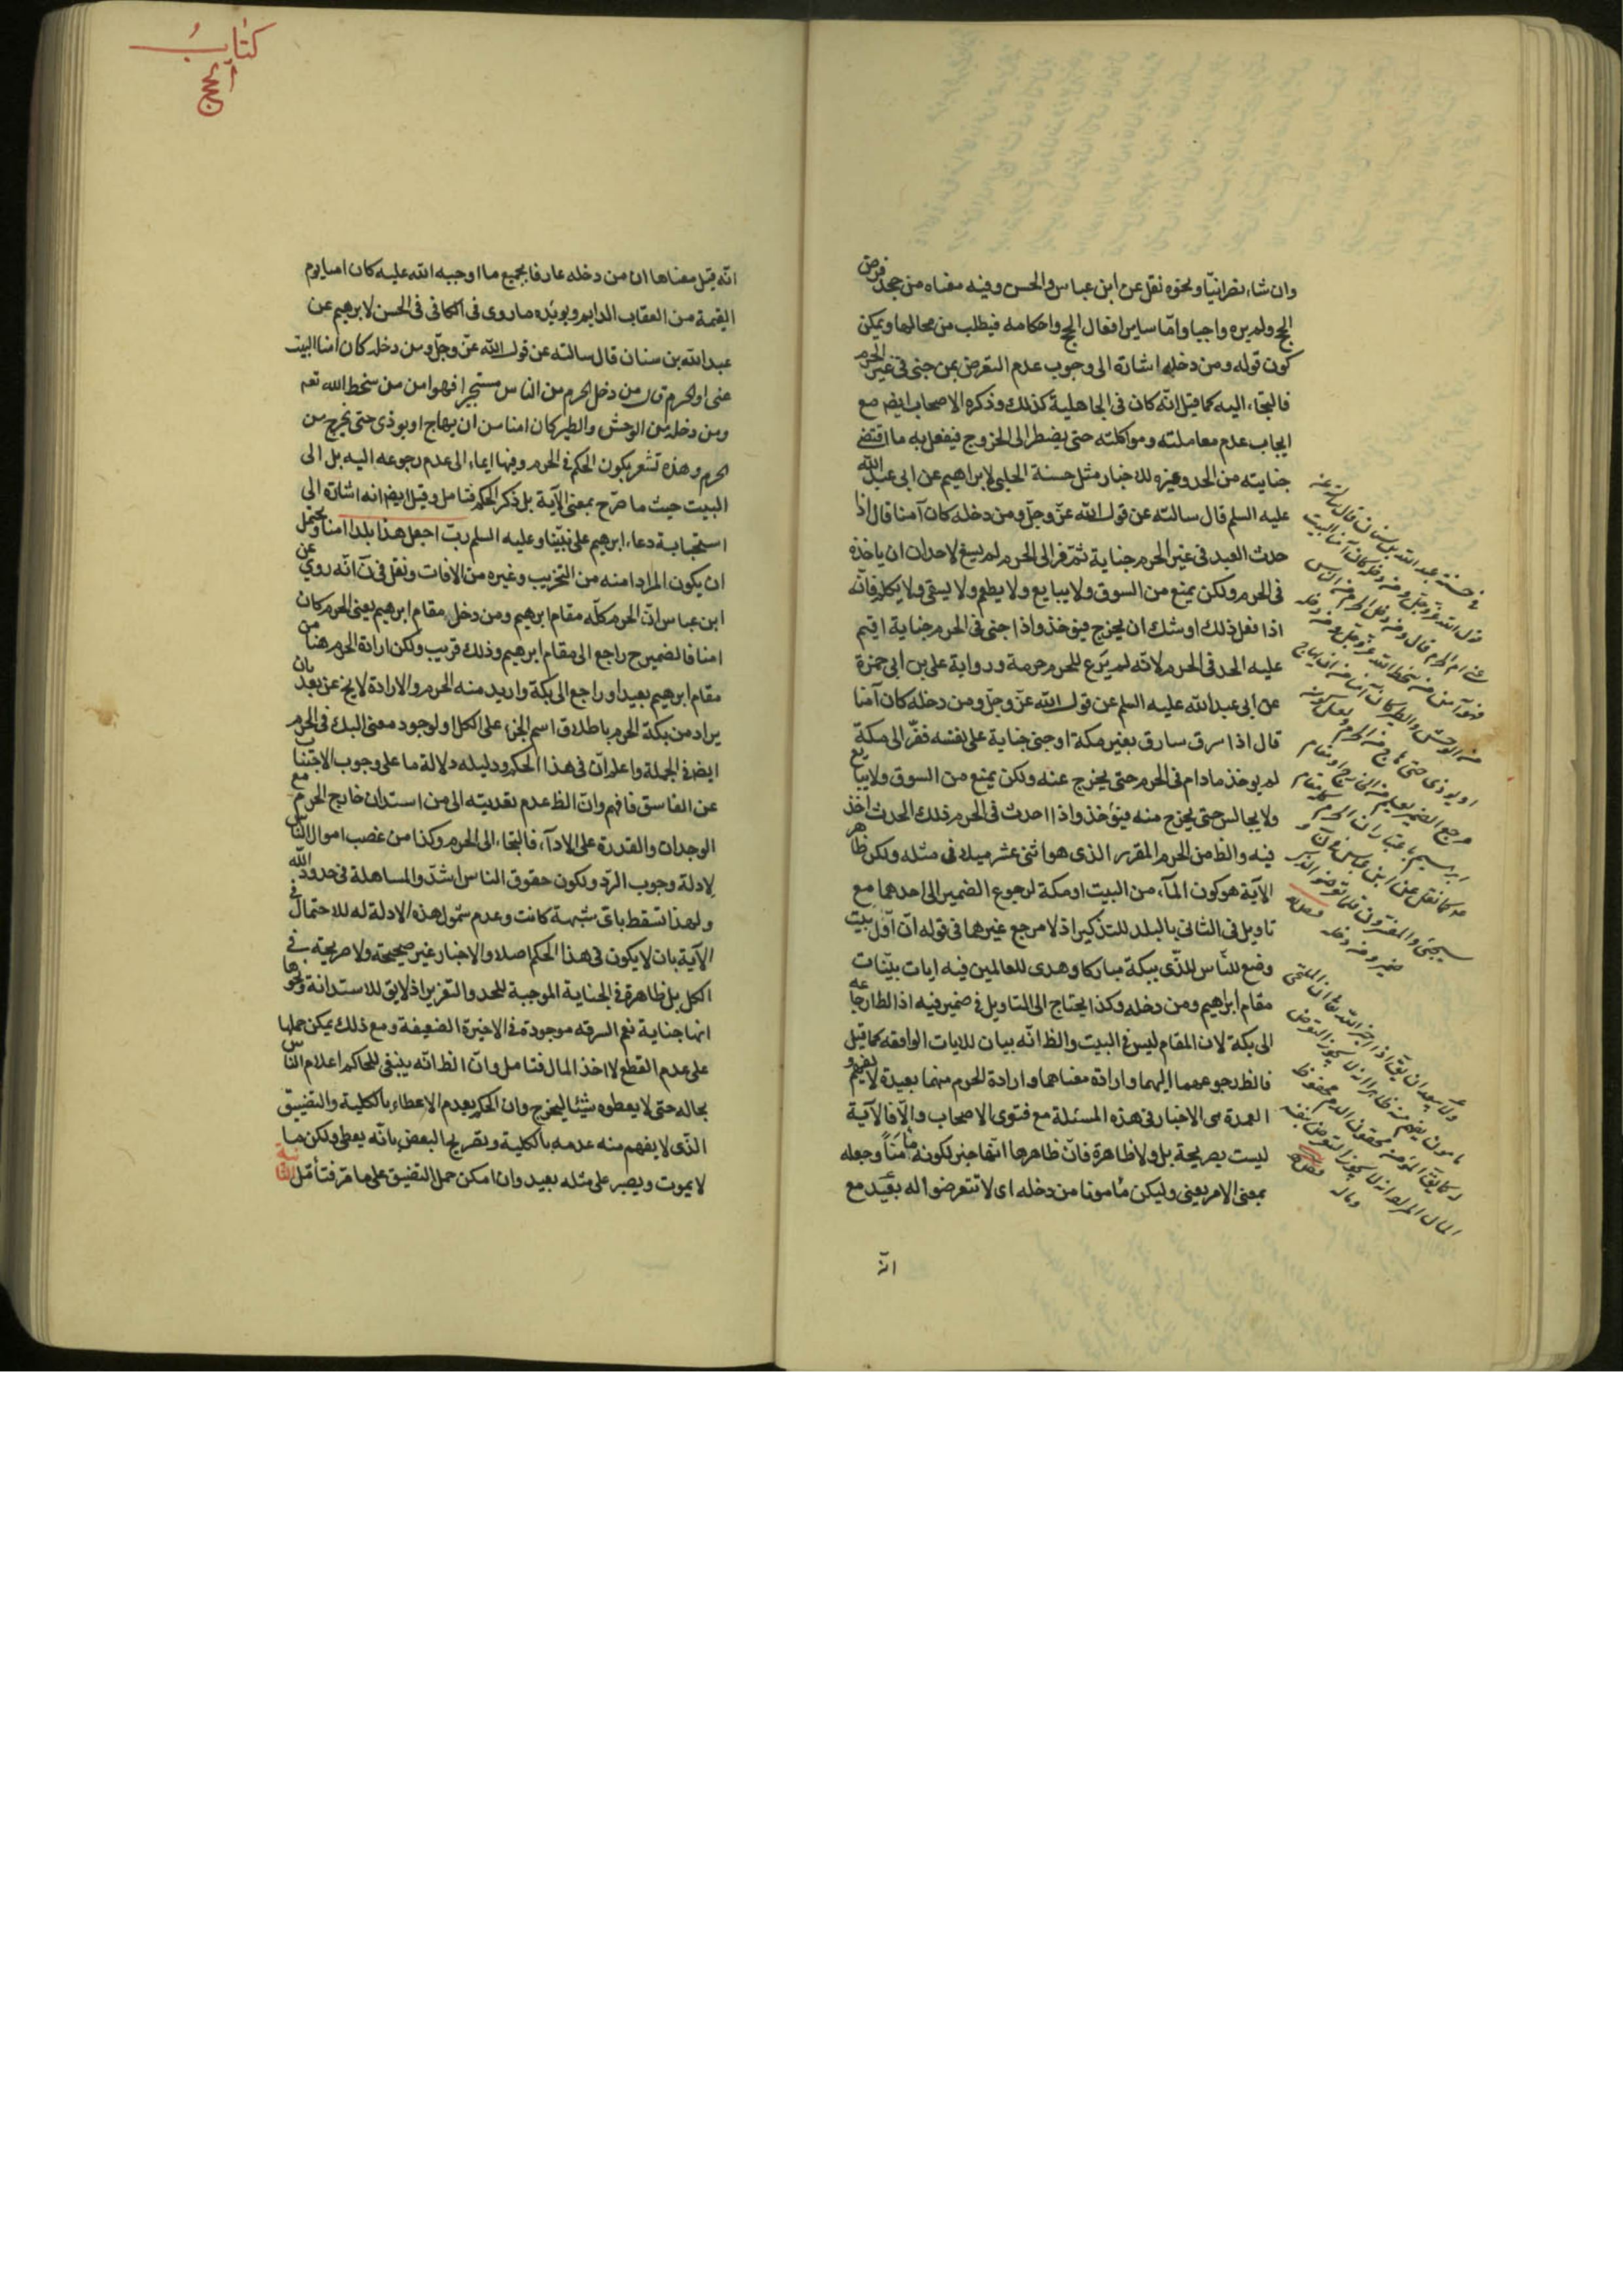 وان شاء نصرانيّا ونحوه نقل عن ابن عباس والحسن وفيه معناه من جحد فرض
الحج ولم يره واجبا وامّا ساير افعال الحج واحكامه فيطلب من محالها ويمكن
كون قوله ومن دخله اشارة الى وجوب عدم التعرض بمن جنى فى غير الحرم
فالتجاء اليه كما قيل انّه كان فى الجاهلية كذلك وذكره الاصحاب ايضم مع
ايجاب عدم معاملته ومواكلته حتى يضطر الى الخروج فيفعل به ما اقتضى
جنايته من الحد وغيره للاخبار مثل حسنة الحلبى لابراهيم عن ابى عبد الله
عليه السلم قال سالته عن قول الله عزّ وجلّ ومن دخله كان آمنا قال اذا
حدث العبد فى غير الحرم جناية ثمّ فر الى الحرم لم يسغ لاحد ان ياخذه
فى الحرم ولكن يمنع من السوق ولا يبايع ولا يطعم ولا يسقى ولا يكلم فانّه
اذا فعل ذلك اوشك ان يخرج فيؤخذ واذا جنى فى الحرم جناية اقيم
عليه الحد فى الحرم لانّه لم يرع للحرم حرمة ورواية على بن ابى حمزة
عن ابى عبد الله عليه السلم عن قول الله عزّ وجلّ ومن دخله كان آمنا
قال اذا سرق سارق بغير مكة او جنى جناية على نفسه ففرّ الى مكة
لم يوخذ مادام فى الحرم حتى يخرج عنه ولكن يمنع من السوق ولا يبايع
ولا يجالس حتى يخرج منه فيؤخذ واذا احدث فى الحرم ذلك الحدث اخذ
فيه والظ من الحرم المقرر الذى هو اثنى عشر ميلا فى مثله ولكن ظاهر
الآية هو كون المآء من البيت او مكة لرجوع الضمير الى احدهما مع
تاويل فى الثانى بالبلد للتذكير اذ لا مرجع غيرها فى قوله انّ اوّل بيت
وضع للنّاس للذّى ببكة مباركا وهدى للعالمين فيه ايات بيّنات
مقام ابراهيم ومن دخله وكذا يحتاج الى التاويل فى ضمير فيه اذ الظ ارجاعه
الى بكة لان المقام ليس فى البيت والظ انّه بيان للايات الواقعه كما قيل
فالظ رجوعهما اليهما وارادة معناهما وارادة الحرم منهما بعيدة لا يفهم و
العمدة هى الاخبار فى هذه المسئلة مع فتوى الاصحاب والّا فالآية
ليست بصريحة بل ولا ظاهرة فانّ ظاهرها انّها خبر لكونه مأمنا وجعله
بمعنى الامر يعنى وليكن مأمونا من دخله اى لا تتعرضوا له بعيد مع
انّه
فى حسنة عبد الله بن سنان قال سالته عن
قول الله عزّ وجلّ ومن دخله كان آمنا البيت
عنى ام الحرم قال ومن دخل الحرم من الناس
فهو آمن من سخط الله عزّ وجلّ ومن دخله
من الوحش والطير كان آمنا من ان يهاج
او يوذى حتى يخرج من الحرم
كما نقل عن ابن عباس
كتاب
الحج
انّه قيل معناها ان من دخله عارفا بجميع ما اوجبه الله عليه كان امنا يوم
القيمة من العقاب الدايم ويويّده ما روى فى الكافى فى الحسن لابرهيم عن
عبد الله بن سنان قال سالته عن قول الله عزّ وجلّ ومن دخله كان امنا البيت
عنى او الحرم قال من دخل الحرم من الناس مستجيرا فهو امن من سخط الله تعم
ومن دخله من الوحش والطير كان امنا من ان يهاج او يوذى حتى يخرج من
الحرم وهذه تشعر بكون الحكم فى الحرم وفيها ايماء الى عدم رجوعه اليه بل الى
البيت حيث ما صرّح بمعنى الآية بل ذكر الحكم فتامل وقيل ايضم انه اشارة الى
استجابة دعاء ابرهيم على نبيّنا وعليه السلم ربّ اجعل هذا بلدا امنا ويحتمل
ان يكون المراد امنه من التخريب وغيره من الافات ونقل فى ن انّه روي عن
ابن عباس انّ الحرم كلّه مقام ابرهيم ومن دخل مقام ابرهيم يعنى الحرم كان
امنا فالضمير ح راجع الى مقام ابرهيم وذلك قريب ولكن ارادة الحرم هنا من
مقام ابرهيم بعيد او راجع الى بكة واريد منه الحرم والارادة لا يخ عن بعد بان
يراد من بكة الحرم باطلاق اسم الجزء على الكل او لوجود معنى البك فى الحرم
ايضم فى الجملة واعلم انّ فى هذا الحكم ودليله دلالة ما على وجوب الاجتناب
عن الفاسق فافهم وانّ الظ عدم تعديته الى من استدان خارج الحرم مع
الوجدان والقدرة على الادآء فالتجاء الى الحرم وكذا من غصب اموال النّاس
لادلة وجوب الردّ ولكون حقوق الناس اشدّ والمساهلة فى حدود الله
ولهذا تسقط باىّ شبهة كانت وعدم شمول هذه الادلة له للاحتمال فى
الآية بان لا يكون فى هذا الحكم اصلا والاخبار غير صحيحة ولا صريحة فى
الكل بل ظاهرة فى الجناية الموجبة للحد والتعزير اذ لا يق للاستدانة ونحوها
انها جناية نعم السرقه موجودة فى الاخيرة الضعيفة ومع ذلك يمكن حملها
على عدم القطع لا اخذ المال فتامل وانّ الظ انّه ينبغى للحاكم اعلام النّاس
بحاله حتى لا يعطوه شيئا ليخرج وان الحكم بعدم الاعطاء بالكلية والتضييق
الذّى لا يفهم منه عدمه بالكلية وتصريح البعض بانّه يعطى ولكن ما
لا يموت ويصبر على مثله بعيد وان امكن حمل التضيق على ما مرّ فتأمّل الثانية